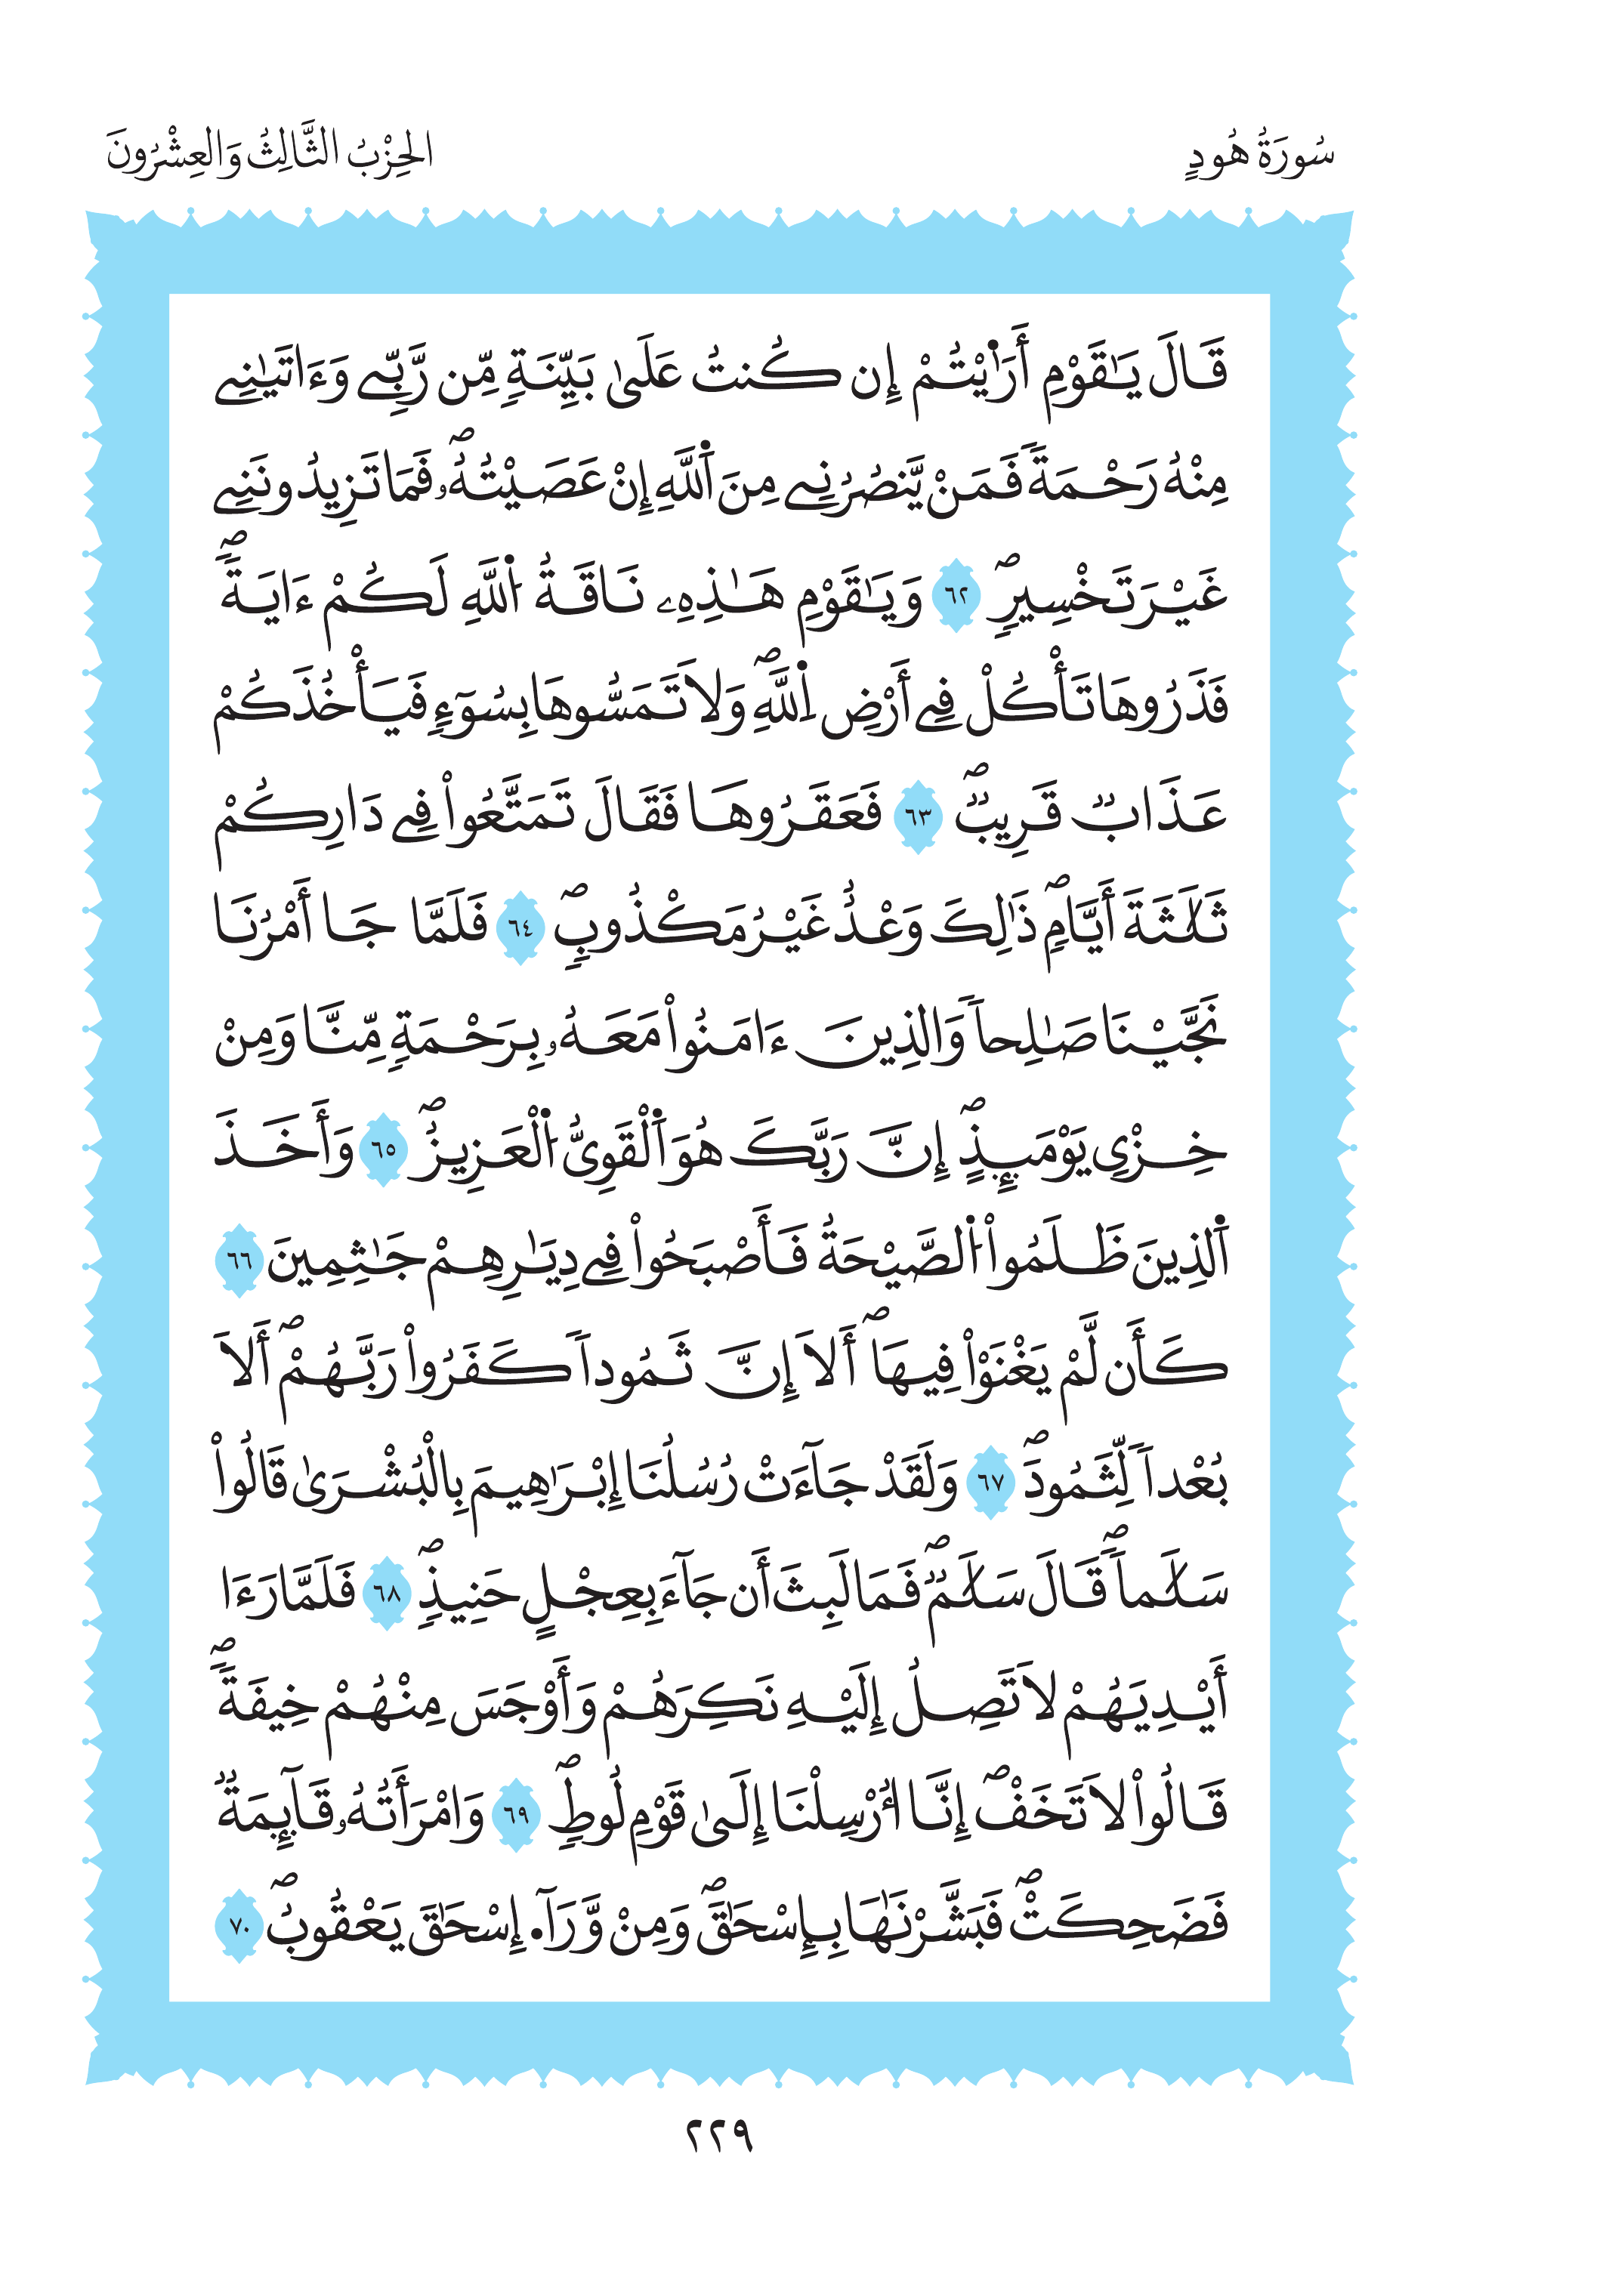 سُورَةُ هُودٍ
الحِزْبُ الثَّالِثُ وَالعِشْرُونَ
قَالَ يَٰقَوْمِ أَرَٰيْتُمْ إِن كُنتُ عَلَىٰ بَيِّنَةٍ مِّن رَّبِّے وَءَاتَيٰنِے
مِنْهُ رَحْمَةً فَمَنْ يَّنصُرُنِے مِنَ اَ۬للَّهِ إِنْ عَصَيْتُهُۥۖ فَمَا تَزِيدُونَنِے
غَيْرَ تَخْسِيرٍۖ ٦٢ وَيَٰقَوْمِ هَٰذِهِۦ نَاقَةُ اُ۬للَّهِ لَكُمْ ءَايَةٗۖ
فَذَرُوهَا تَأْكُلْ فِے أَرْضِ اِ۬للَّهِۖ وَلَا تَمَسُّوهَا بِسُوٓءٖ فَيَأْخُذَكُمْ
عَذَابٞ قَرِيبٞۖ ٦٣ فَعَقَرُوهَا فَقَالَ تَمَتَّعُواْ فِے دَارِكُمْ
ثَلَٰثَةَ أَيَّامٖۖ ذَٰلِكَ وَعْدٌ غَيْرُ مَكْذُوبٖۖ ٦٤ فَلَمَّا جَا أَمْرُنَا
نَجَّيْنَا صَٰلِحاٗ وَالذِينَ ءَامَنُواْ مَعَهُۥ بِرَحْمَةٖ مِّنَّا وَمِنْ
خِزْيِ يَوْمَئِذٍۖ إِنَّ رَبَّكَ هُوَ اَ۬لْقَوِيُّ اُ۬لْعَزِيزُۖ ٦٥ وَأَخَذَ
اَ۬لذِينَ ظَلَمُواْ اُ۬لصَّيْحَةُ فَأَصْبَحُواْ فِے دِيَٰرِهِمْ جَٰثِمِينَ ٦٦
كَأَن لَّمْ يَغْنَوْاْ فِيهَاۖ أَلَا إِنَّ ثَمُوداٗ كَفَرُواْ رَبَّهُمْۖ أَلَا
بُعْداٗ لِّثَمُودَۖ ٦٧ وَلَقَدْ جَآءَتْ رُسُلُنَا إِبْرَٰهِيمَ بِالْبُشْرَىٰ قَالُواْ
سَلَٰماٗۖ قَالَ سَلَٰمٞۖ فَمَا لَبِثَ أَن جَآءَ بِعِجْلٍ حَنِيذٖۖ ٦٨ فَلَمَّا رَءَا
أَيْدِيَهُمْ لَا تَصِلُ إِلَيْهِ نَكِرَهُمْ وَأَوْجَسَ مِنْهُمْ خِيفَةٗۖ
قَالُواْ لَا تَخَفْۖ إِنَّا أُرْسِلْنَا إِلَىٰ قَوْمِ لُوطٖۖ ٦٩ وَامْرَأَتُهُۥ قَآئِمَةٞ
فَضَحِكَتْۖ فَبَشَّرْنَٰهَا بِإِسْحَٰقَۖ وَمِنْ وَّرَآءِ اِسْحَٰقَ يَعْقُوبُۖ ٧٠
٢٢٩